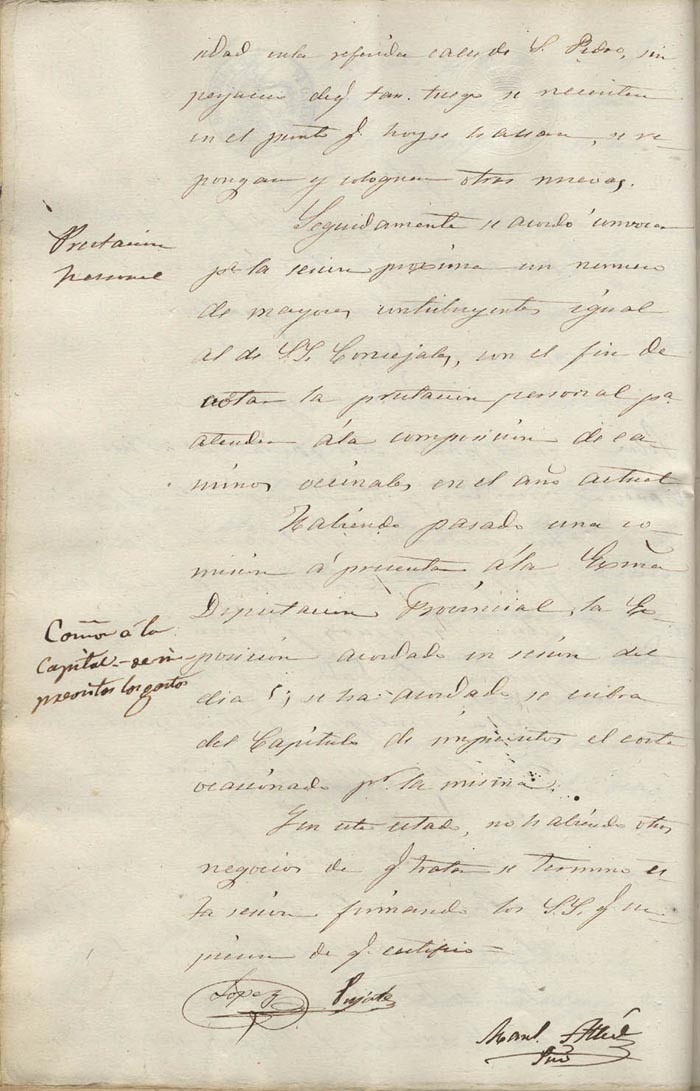 idad en la referida calle de S. Pedro, sin
perjuicio de q.e tan luego se necesiten
en el punto q.e hoy se hallan, se re-
pongan y coloquen otras nuevas.
Prestacion
personal
Seguidamente se acordó convocar
p.a la sesion proxima un numero
de mayores contribuyentes igual
al de S.S. Concejales, con el fin de
votar la prestacion personal p.a
atender á la composicion de ca
minos vecinales en el año actual
Habiendo pasado una co-
mision á presentar á la Exma
Diputacion Provincial, la Es-
posicion acordada en sesion del
dia 5, se ha acordado se cubra
del Capitulo de imprevistos el coste
ocasionado p.r la misma.
Comon á la
Capital - de im
previstos los gastos
Y en este estado, no habiendo otros
negocios de q.e tratar se termino es-
ta sesion firmando los S.S. q.e su
pieron de q.e certifico =
Lopez
Manl.
Srio